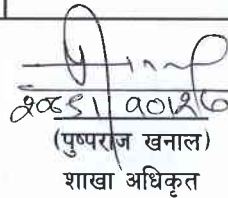 २०८१।१०।२७
(पुष्पराज खनाल)
शाखा अधिकृत